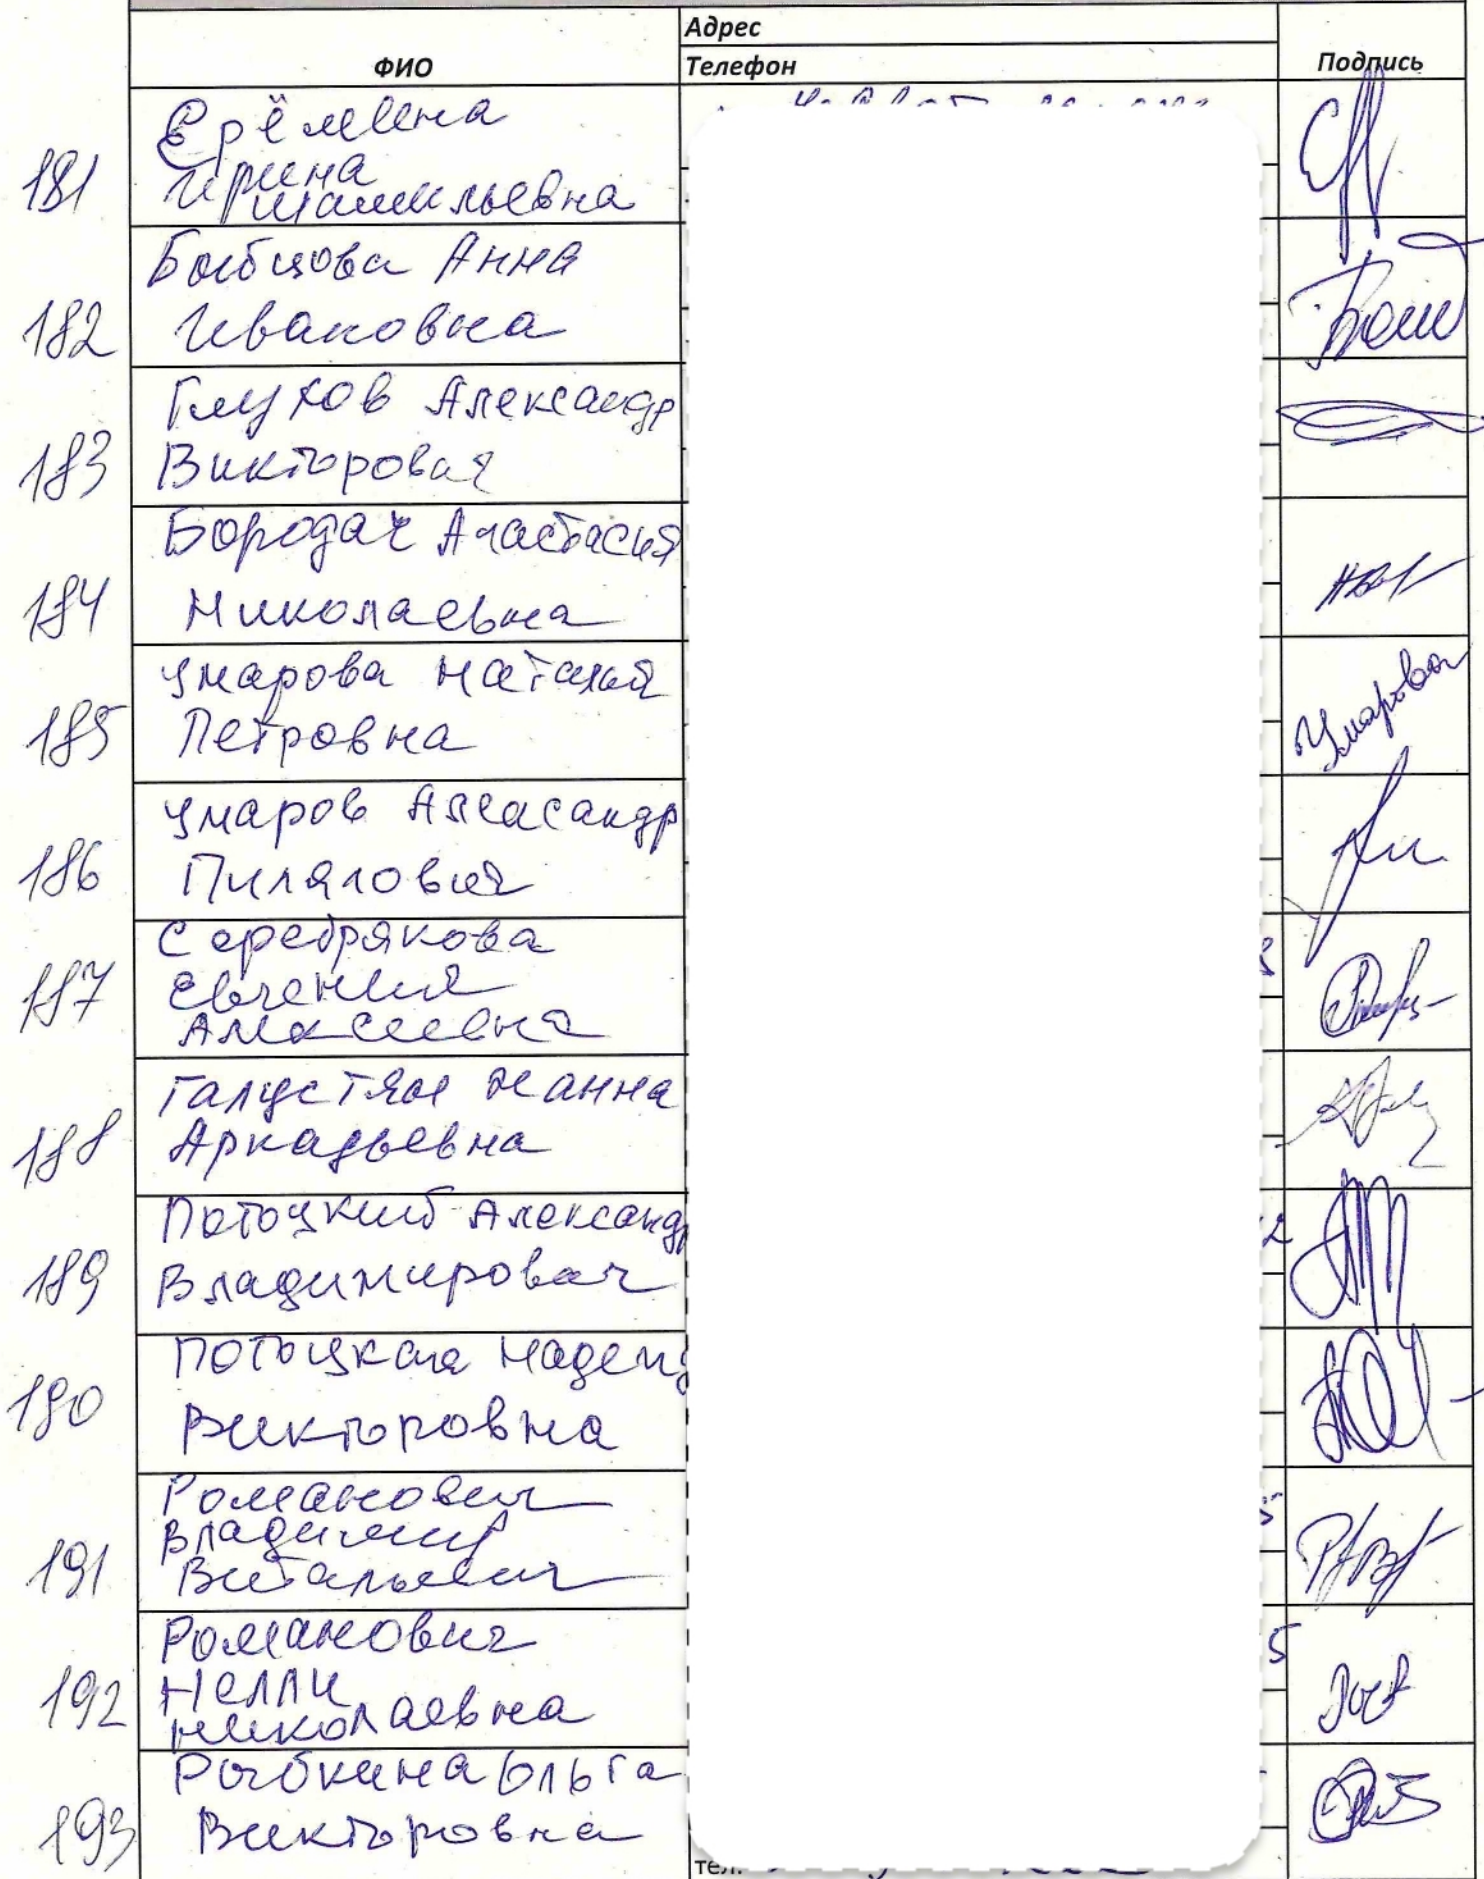 Адрес
ФИО
Телефон
Подпись
181
Ерёмина
Ирина
Шамильевна
182
Анна
Ивановна
183
Глухов Александр
Викторович
184
Бородач Анастасия
Николаевна
185
Умарова Наталья
Петровна
Умарова
186
Умаров Александр
187
Серебрякова
Евгения
Алексеевна
188
Галустян Жанна
Аркадьевна
189
Потоцкий Александр
Владимирович
190
Потоцкая
Викторовна
191
Романович
Владимир
Витальевич
192
Романович
Нелли
Николаевна
5
193
Рыбкина Ольга
Викторовна
тел.